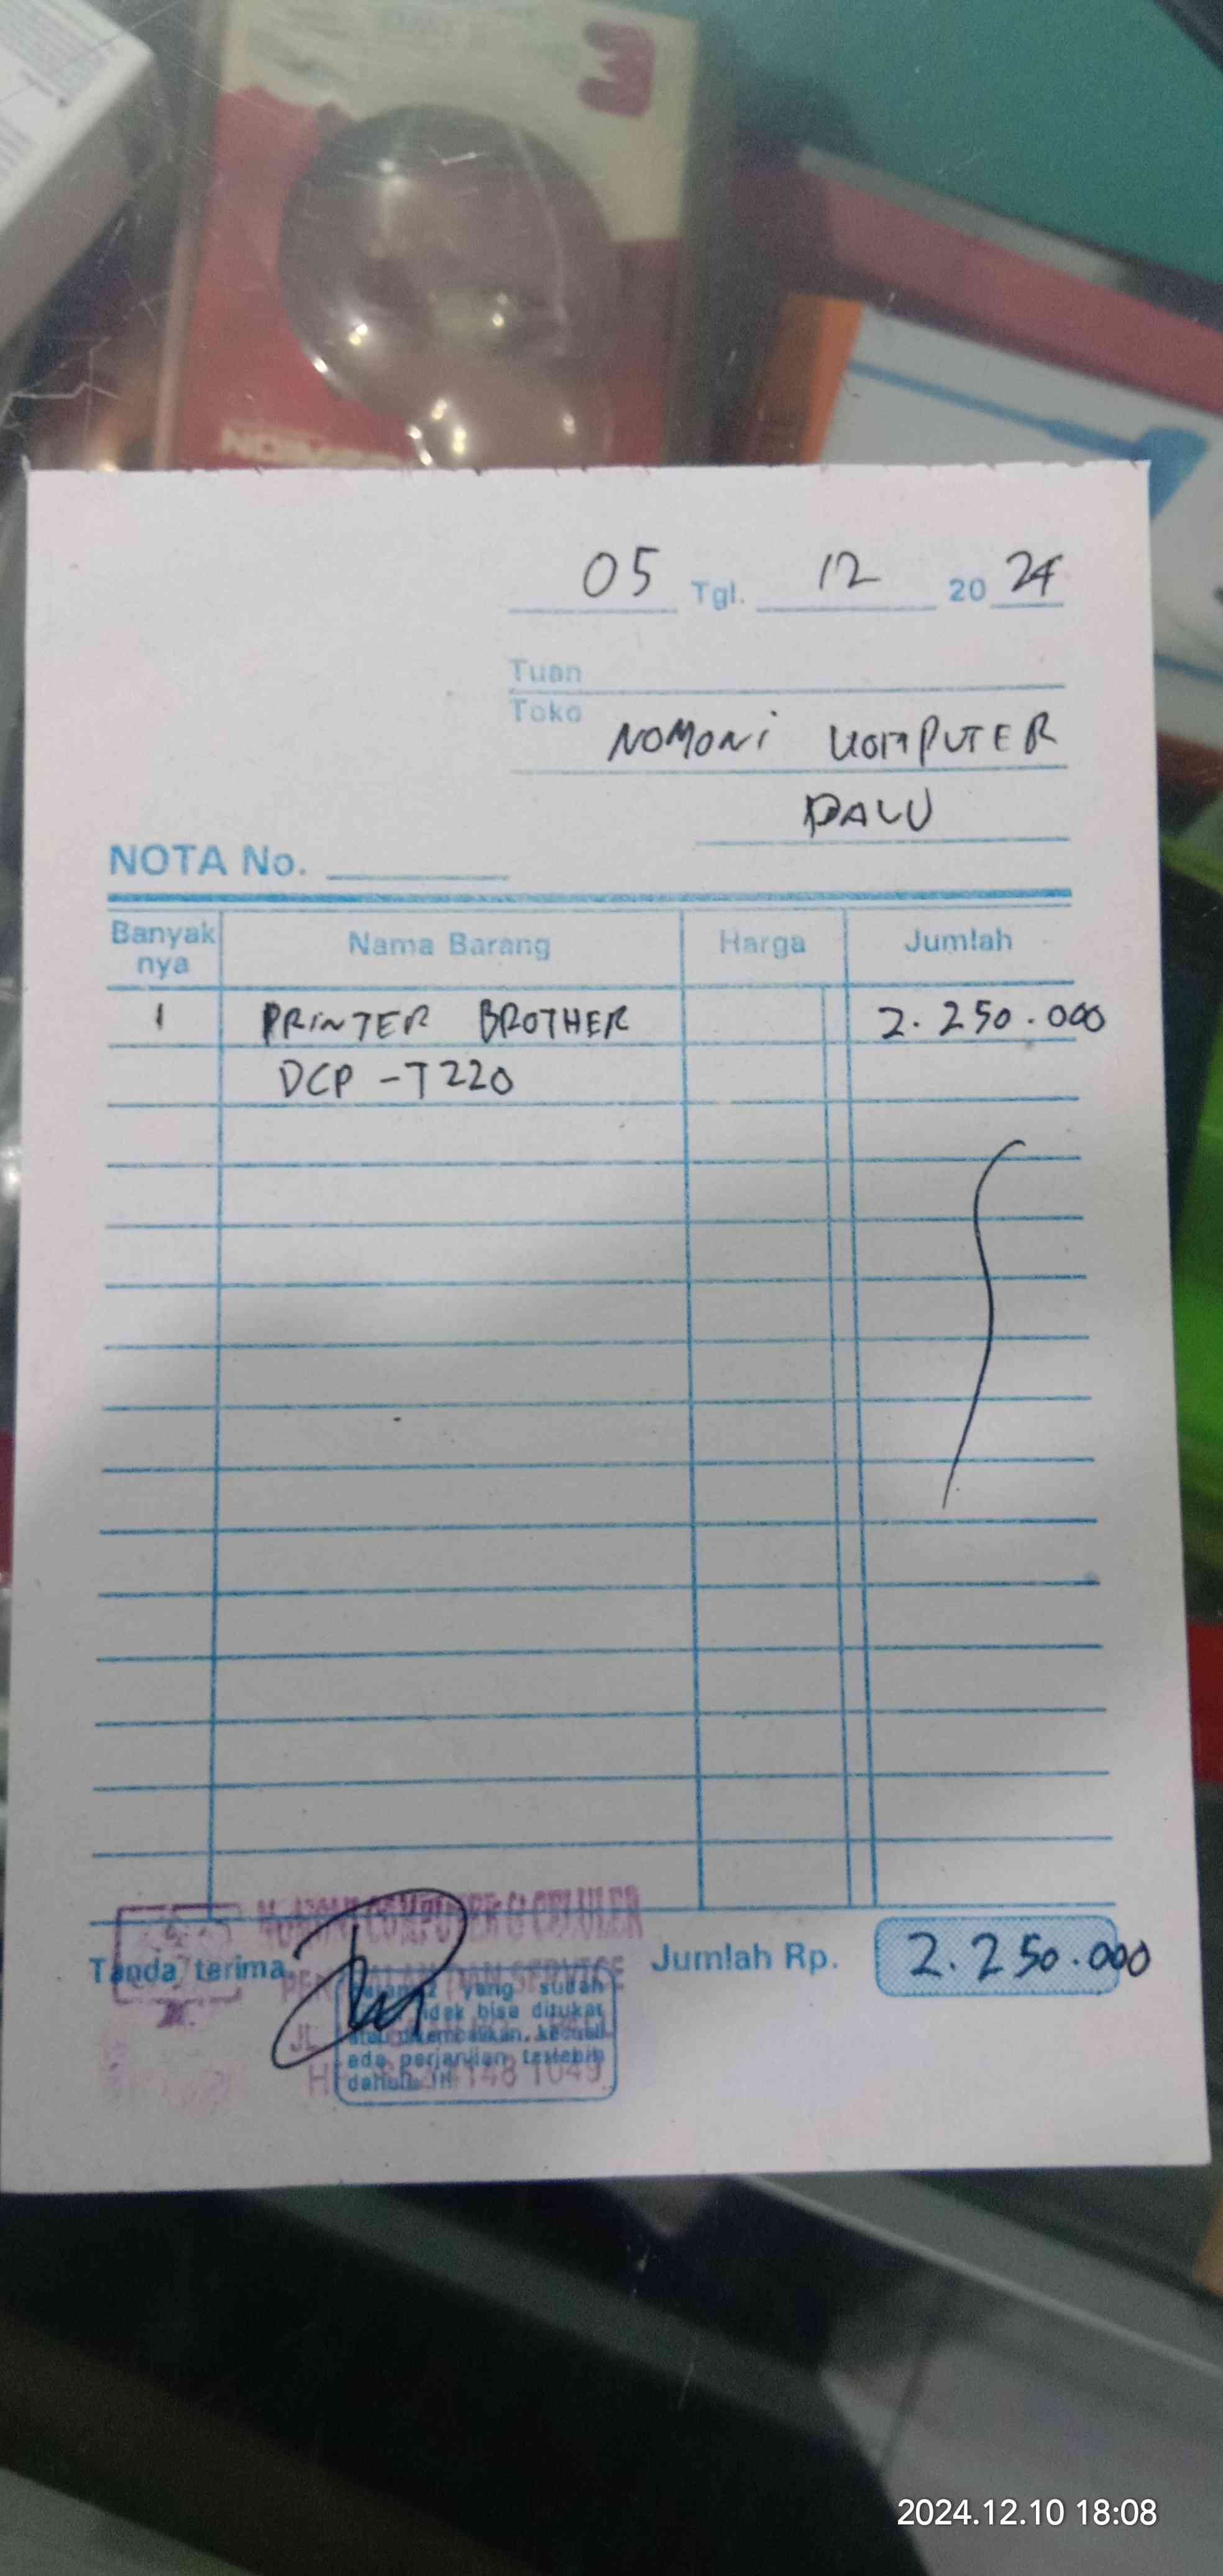 05 Tgl. 12 20 24
Tuan
Toko NOMONI KOMPUTER
PALU
NOTA No.
Banyak nya Nama Barang Harga Jumlah
1 PRINTER BROTHER 2.250.000
DCP -T220
COMPUTER & CELULER
Tanda terima Jumlah Rp. 2.250.000
DAN SERVICE
yang sudah
bisa ditukar
atau dikembalikan, kecuali
ada perjanjian terlebih
dahulu.
148 1049
2024.12.10 18:08